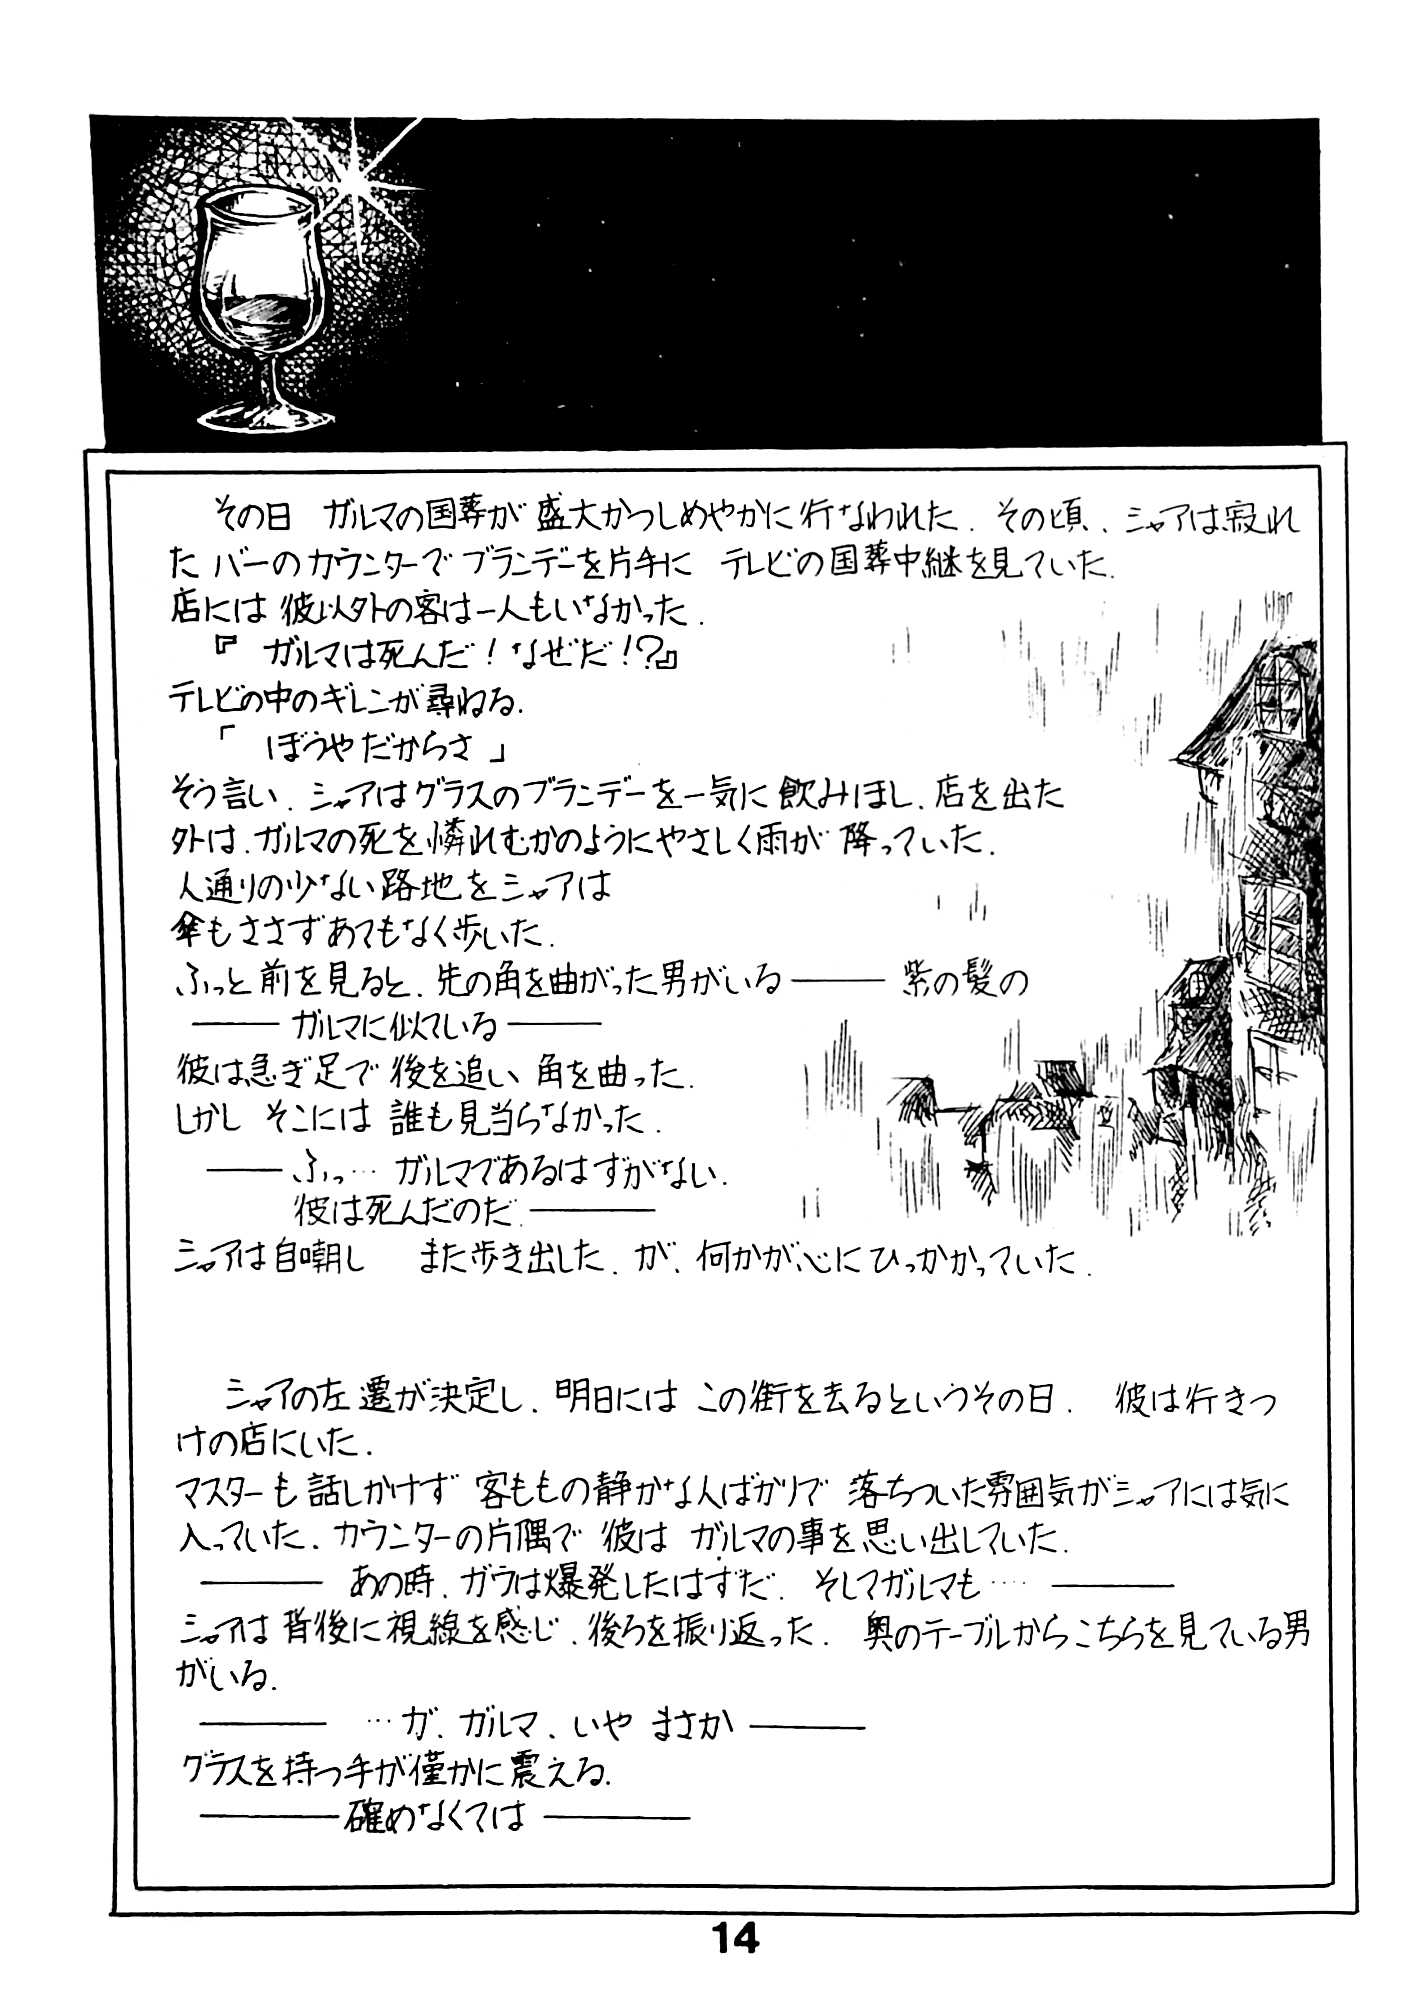 その日　ガルマの国葬が盛大かつしめやかに行なわれた．その頃、シャアは寂れ
たバーのカウンターでブランデーを片手に　テレビの国葬中継を見ていた．
店には彼以外の客は一人もいなかった．
『　ガルマは死んだ！なぜだ！？』
テレビの中のギレンが尋ねる．
「　ぼうやだからさ」
そう言い、シャアはグラスのブランデーを一気に飲みほし、店を出た
外は、ガルマの死を憐れむかのようにやさしく雨が降っていた．
人通りの少ない路地をシャアは
傘もささずあてもなく歩いた．
ふっと前を見ると、先の角を曲がった男がいる――― 紫の髪の
――― ガルマに似ている ―――
彼は急ぎ足で後を追い 角を曲った．
しかし そこには 誰も見当らなかった．
――― ふっ… ガルマであるはずがない．
彼は死んだのだ．―――
シャアは自嘲し　また歩き出した．が、何かが心にひっかかっていた．
シャアの左遷が決定し、明日には この街を去るというその日．　彼は行きつ
けの店にいた．
マスターも話しかけず 客ももの静かな人ばかりで 落ちついた雰囲気がシャアには気に
入っていた．カウンターの片隅で 彼は ガルマの事を思い出していた．
――― あの時、ガウは爆発したはずだ．そしてガルマも…. ―――
シャアは背後に視線を感じ、後ろを振り返った．　奥のテーブルからこちらを見ている男
がいる．
―――　…ガ、ガルマ、いや まさか ―――
グラスを持つ手が僅かに震える．
――― 確めなくては ―――
14